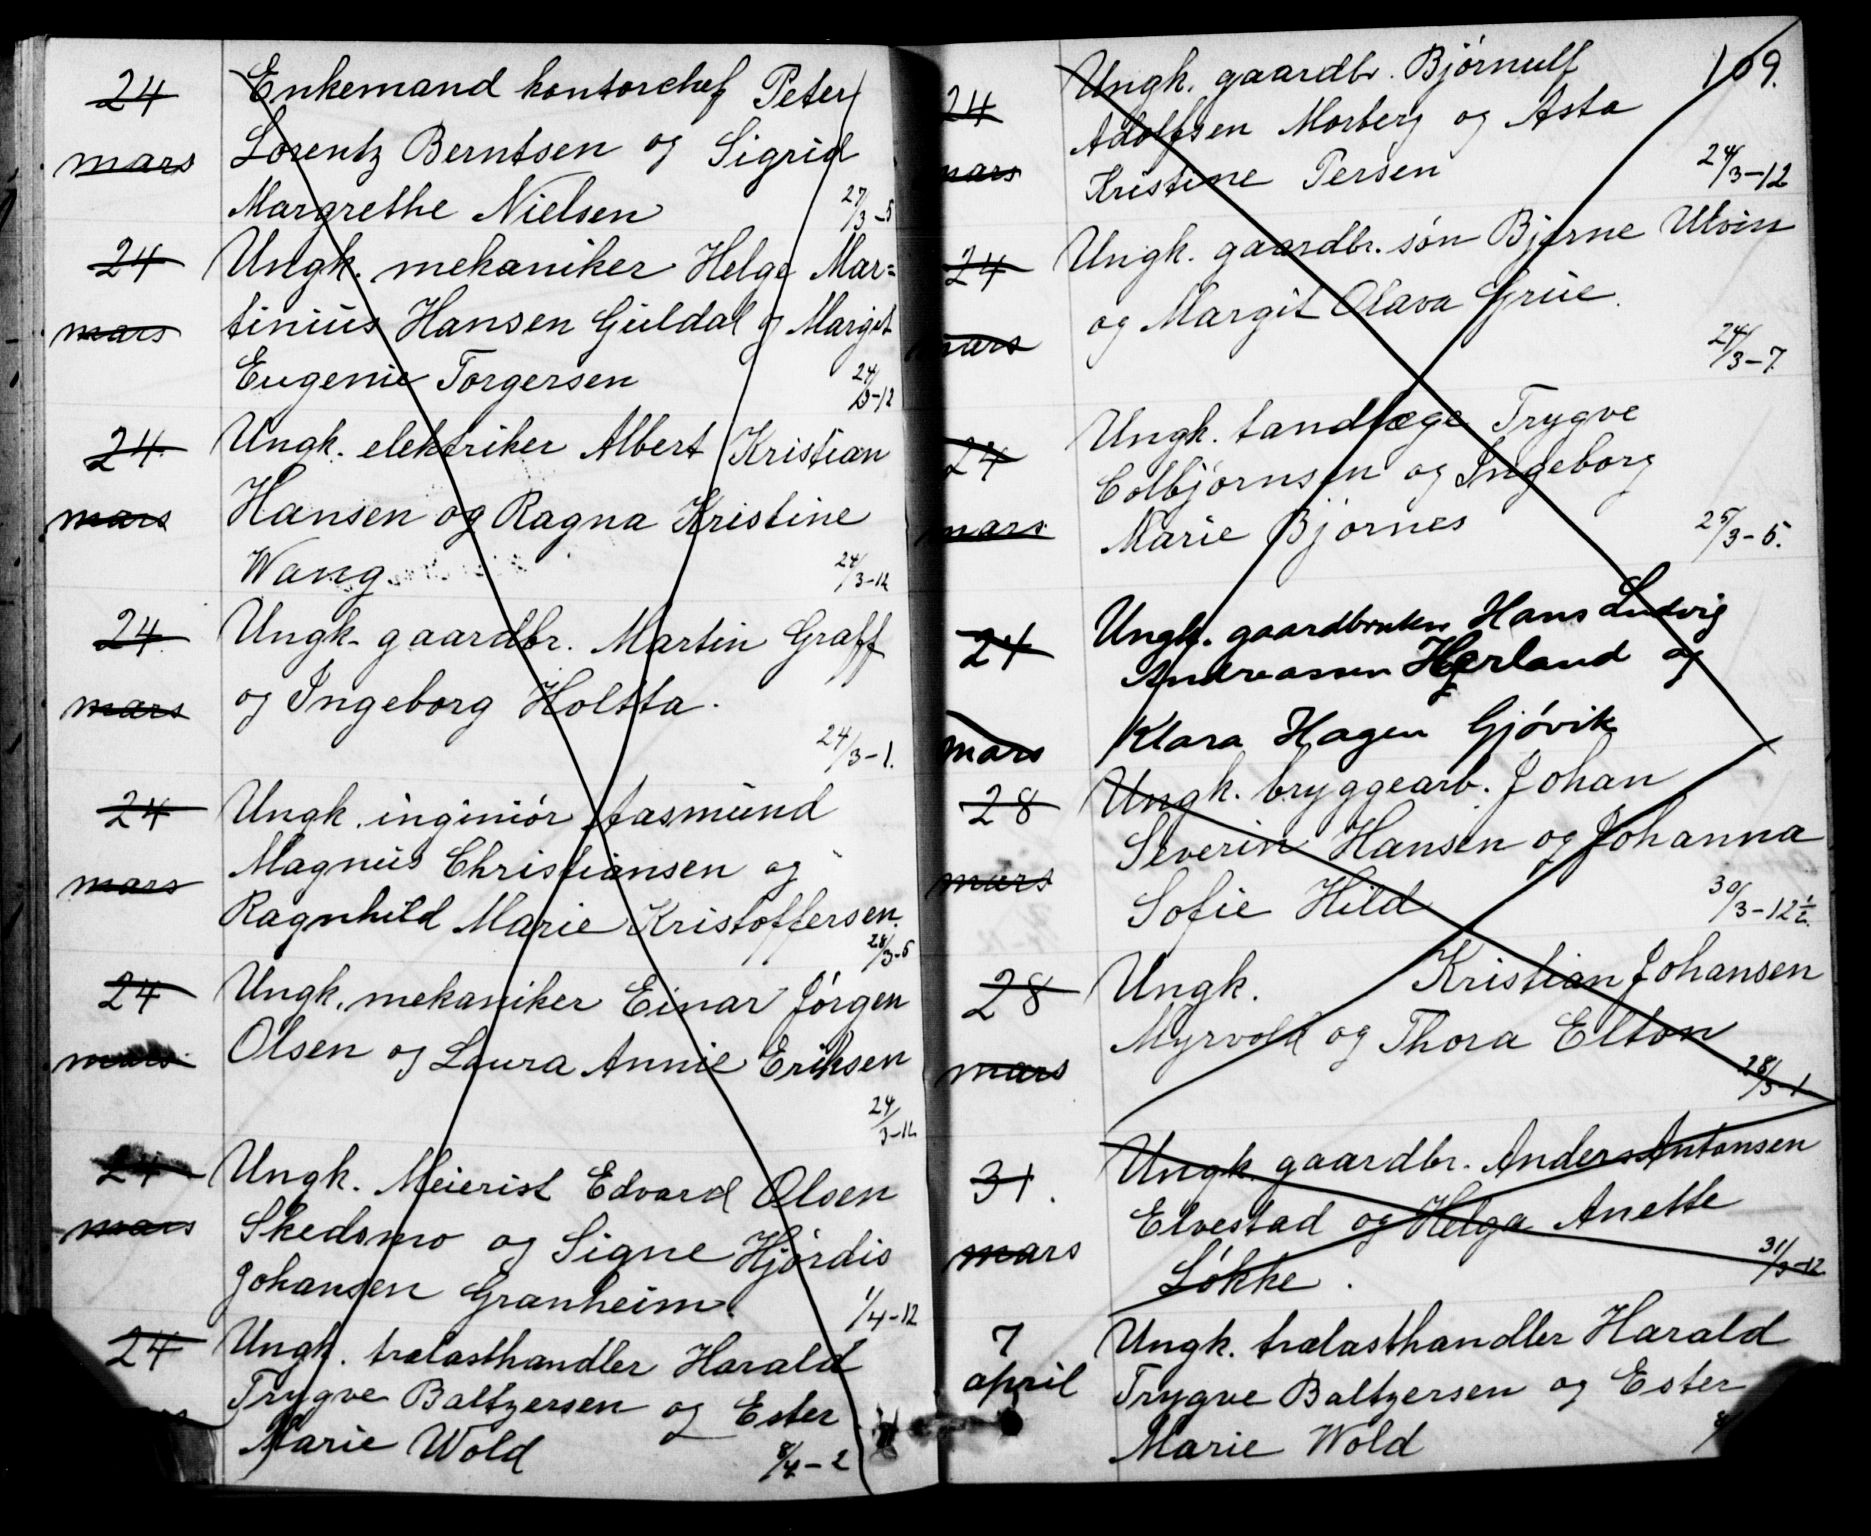 24 Enkemand kontorchef Peter
mars Lorentz Berntsen og Sigrid
Margrethe Nielsen 27/3-5
24 Ungk. mekaniker Helge Mar=
mars tinius Hansen Guldal og Margit
Eugenie Torgersen 24/3-12
24 Ungk. elektriker Albert Kristian
mars Hansen og Ragna Kristine
Wang 24/3-12
24 Ungk. gaardbr. Martin Graff
mars og Ingeborg Holtta.
24/3-1.
24 Ungk. inginiør Aasmund
mars Magnus Christiansen og
Ragnhild Marie Kristoffersen.
28/3-5
24 Ungk. mekaniker Einar Jørgen
mars Olsen og Laura Annie Eriksen
24/3-12
24 Ungk. Meierist Edvard Olsen
mars Skedsmo og Signe Hjørdis
Johansen Granheim. 1/4-12
24 Ungk. trælasthandler Harald
Trygve Baltzersen og Ester
Marie Wold 8/4-2
109.
24 Ungk. gaardbr. Bjørnulf
Adolfsen Morberg og Asta
mars Kristine Persen 24/3-12
24 Ungk. gaardbr. søn Bjarne Ulvin
og Margit Olava Grue.
mars 24/3-7
24 Ungk. tandlæge Trygve
Colbjørnsen og Ingeborg
mars Marie Bjørnes 25/3-5.
24 Ungk. gaardbruker Hans Ludvig
Andreassen Hærland og
mars Klara Hagen Gjøvik
28 Ungk. bryggearb. Johan
Severin Hansen og Johanna
mars Sofie Hild 30/3-12½
28 Ungk. Kristian Johansen
Myrvold og Thora Elton
mars 28/3-1
31. Ungk. gaardbr. Anders Antonsen
Elvestad og Helga Anette
mars Løkke. 31/3-12
7 Ungk. trælasthandler Harald
april Trygve Baltzersen og Ester
Marie Wold